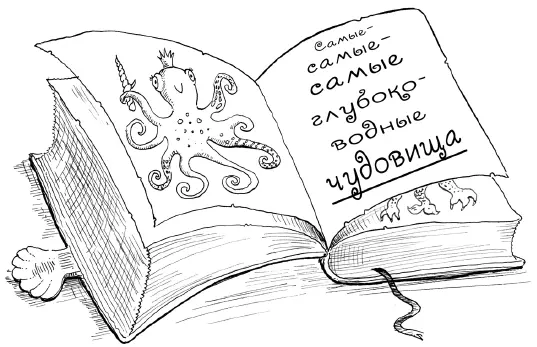 Самые-
самые-
самые
глубоко-
водные
чудовища